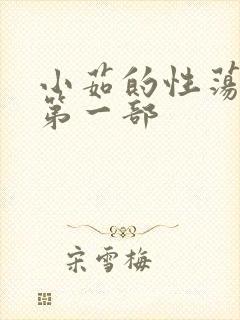 小茹的性荡
第一部
宋雪梅